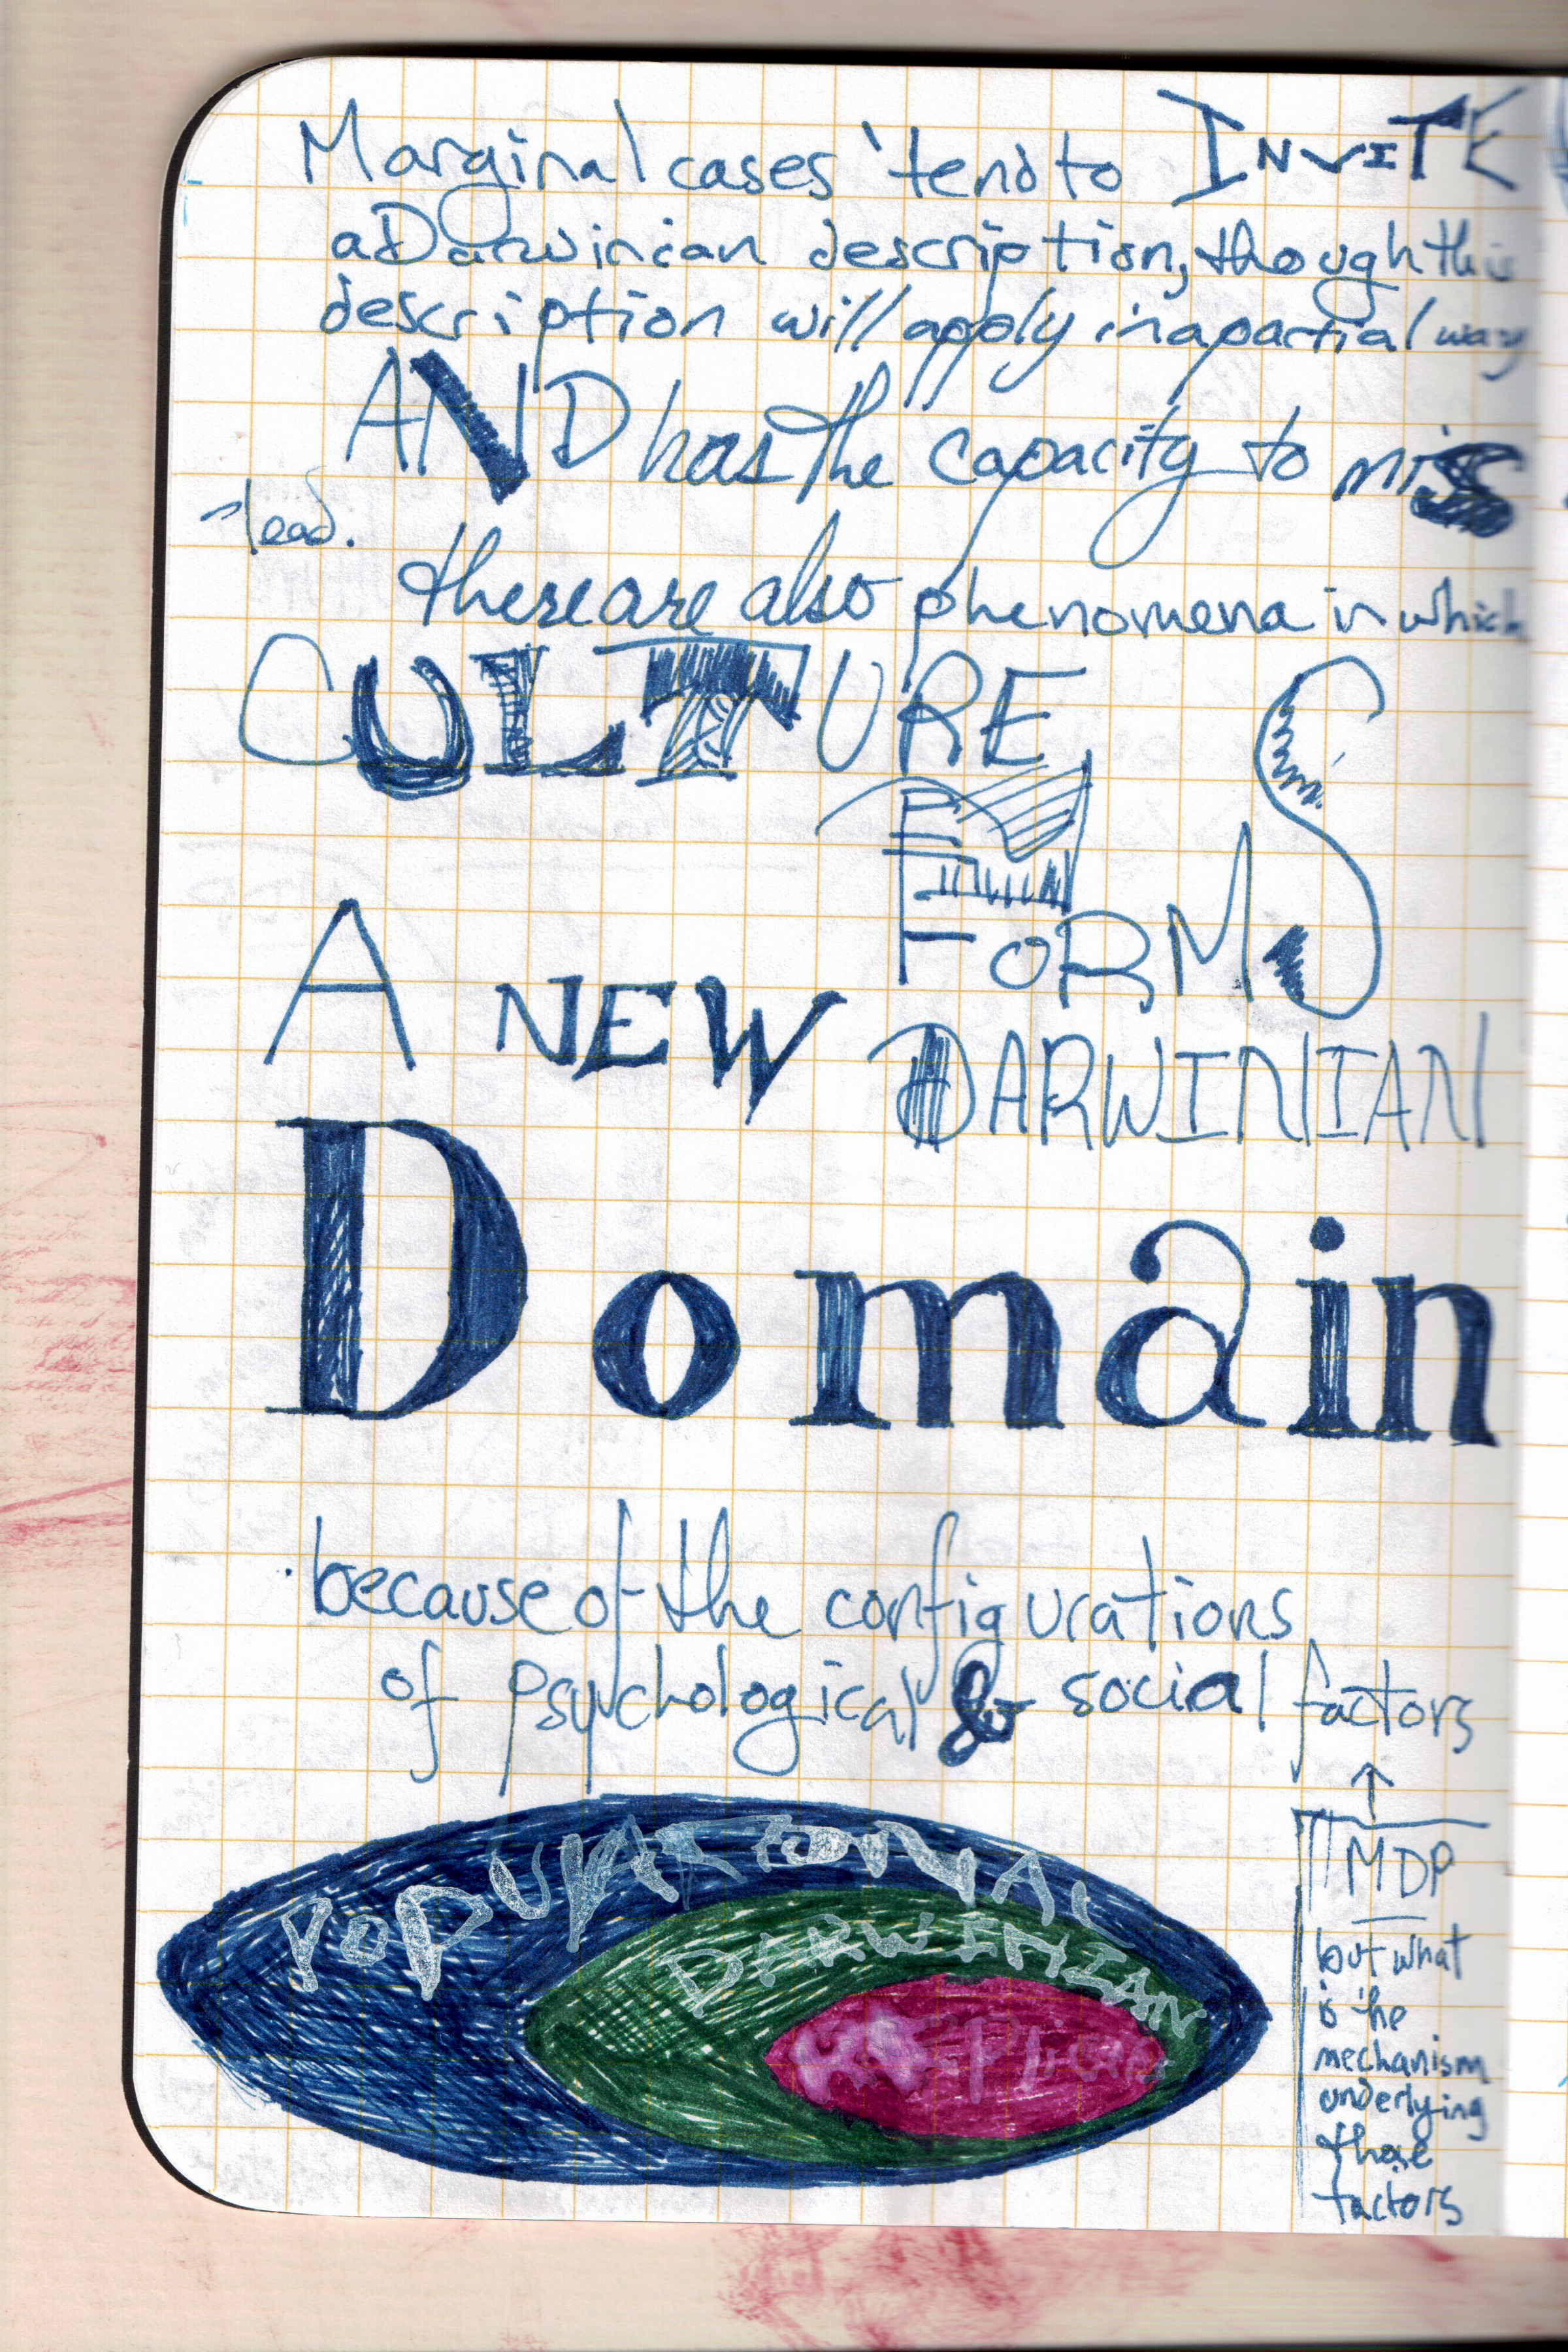 Marginal cases tend to INVITE
a Darwinian description, though this
description will apply in a partial way
AND has the capacity to mis
-lead.
there are also phenomena in which
CULTURE
FORMS
A NEW DARWINIAN
Domain
because of the configurations
of psychological & social factors
POPULATIONAL
DARWINIAN
MDP
but what
is the
mechanism
underlying
those
factors